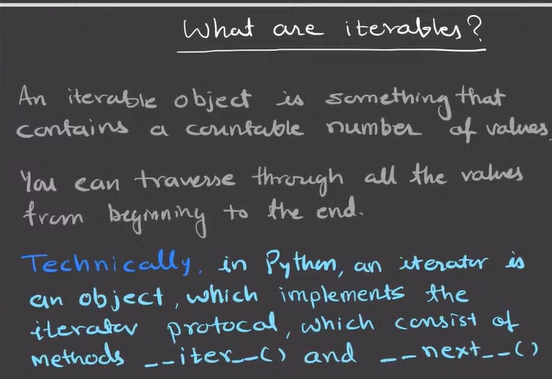 What are iterables?
An iterable object is something that
contains a countable number of values
You can traverse through all the values
from beginning to the end.
Technically, in Python, an iterator is
an object, which implements the
iterator protocal, which consist of
methods __iter__() and __next__()